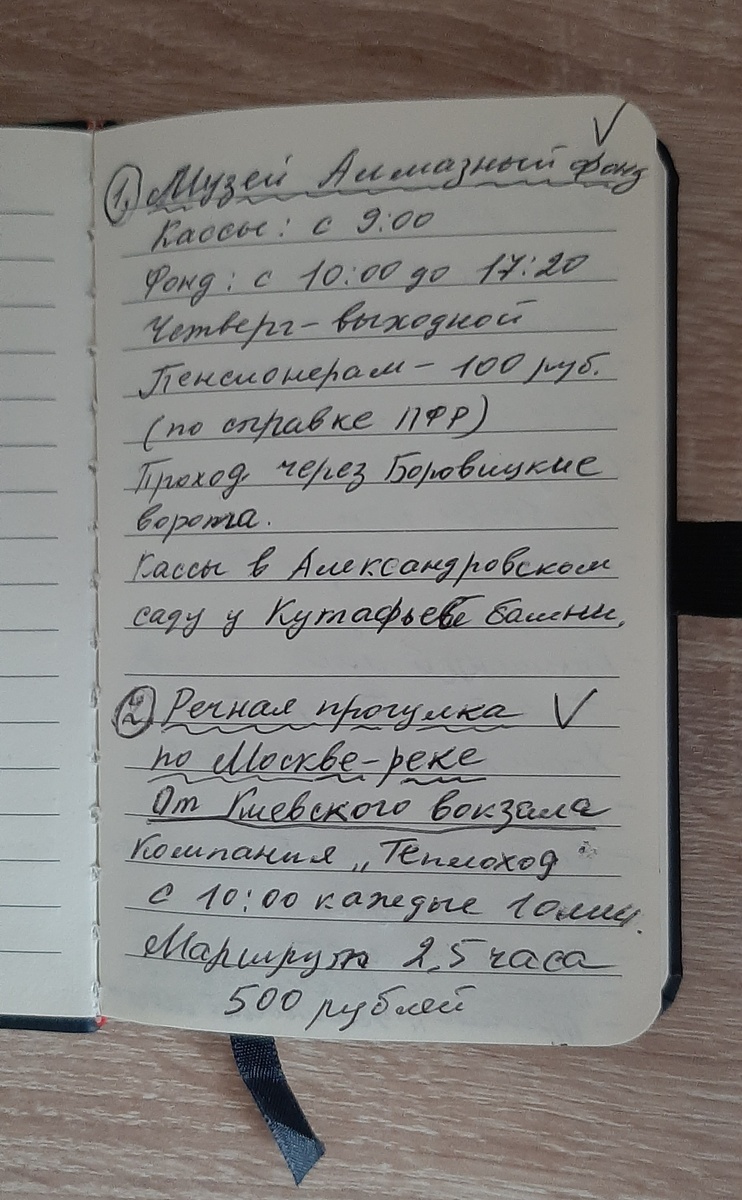 1. Музей Алмазный фонд V
Кассы: с 9:00
Фонд: с 10:00 до 17:20
Четверг - выходной
Пенсионерам - 100 руб.
(по справке ПФР)
Проход через Боровицкие
ворота.
Кассы в Александровском
саду у Кутафьевой башни.
2. Речная прогулка V
по Москве-реке
От Киевского вокзала
Компания „Теплоход"
с 10:00 каждые 10 мин.
Маршрут 2,5 часа
500 рублей